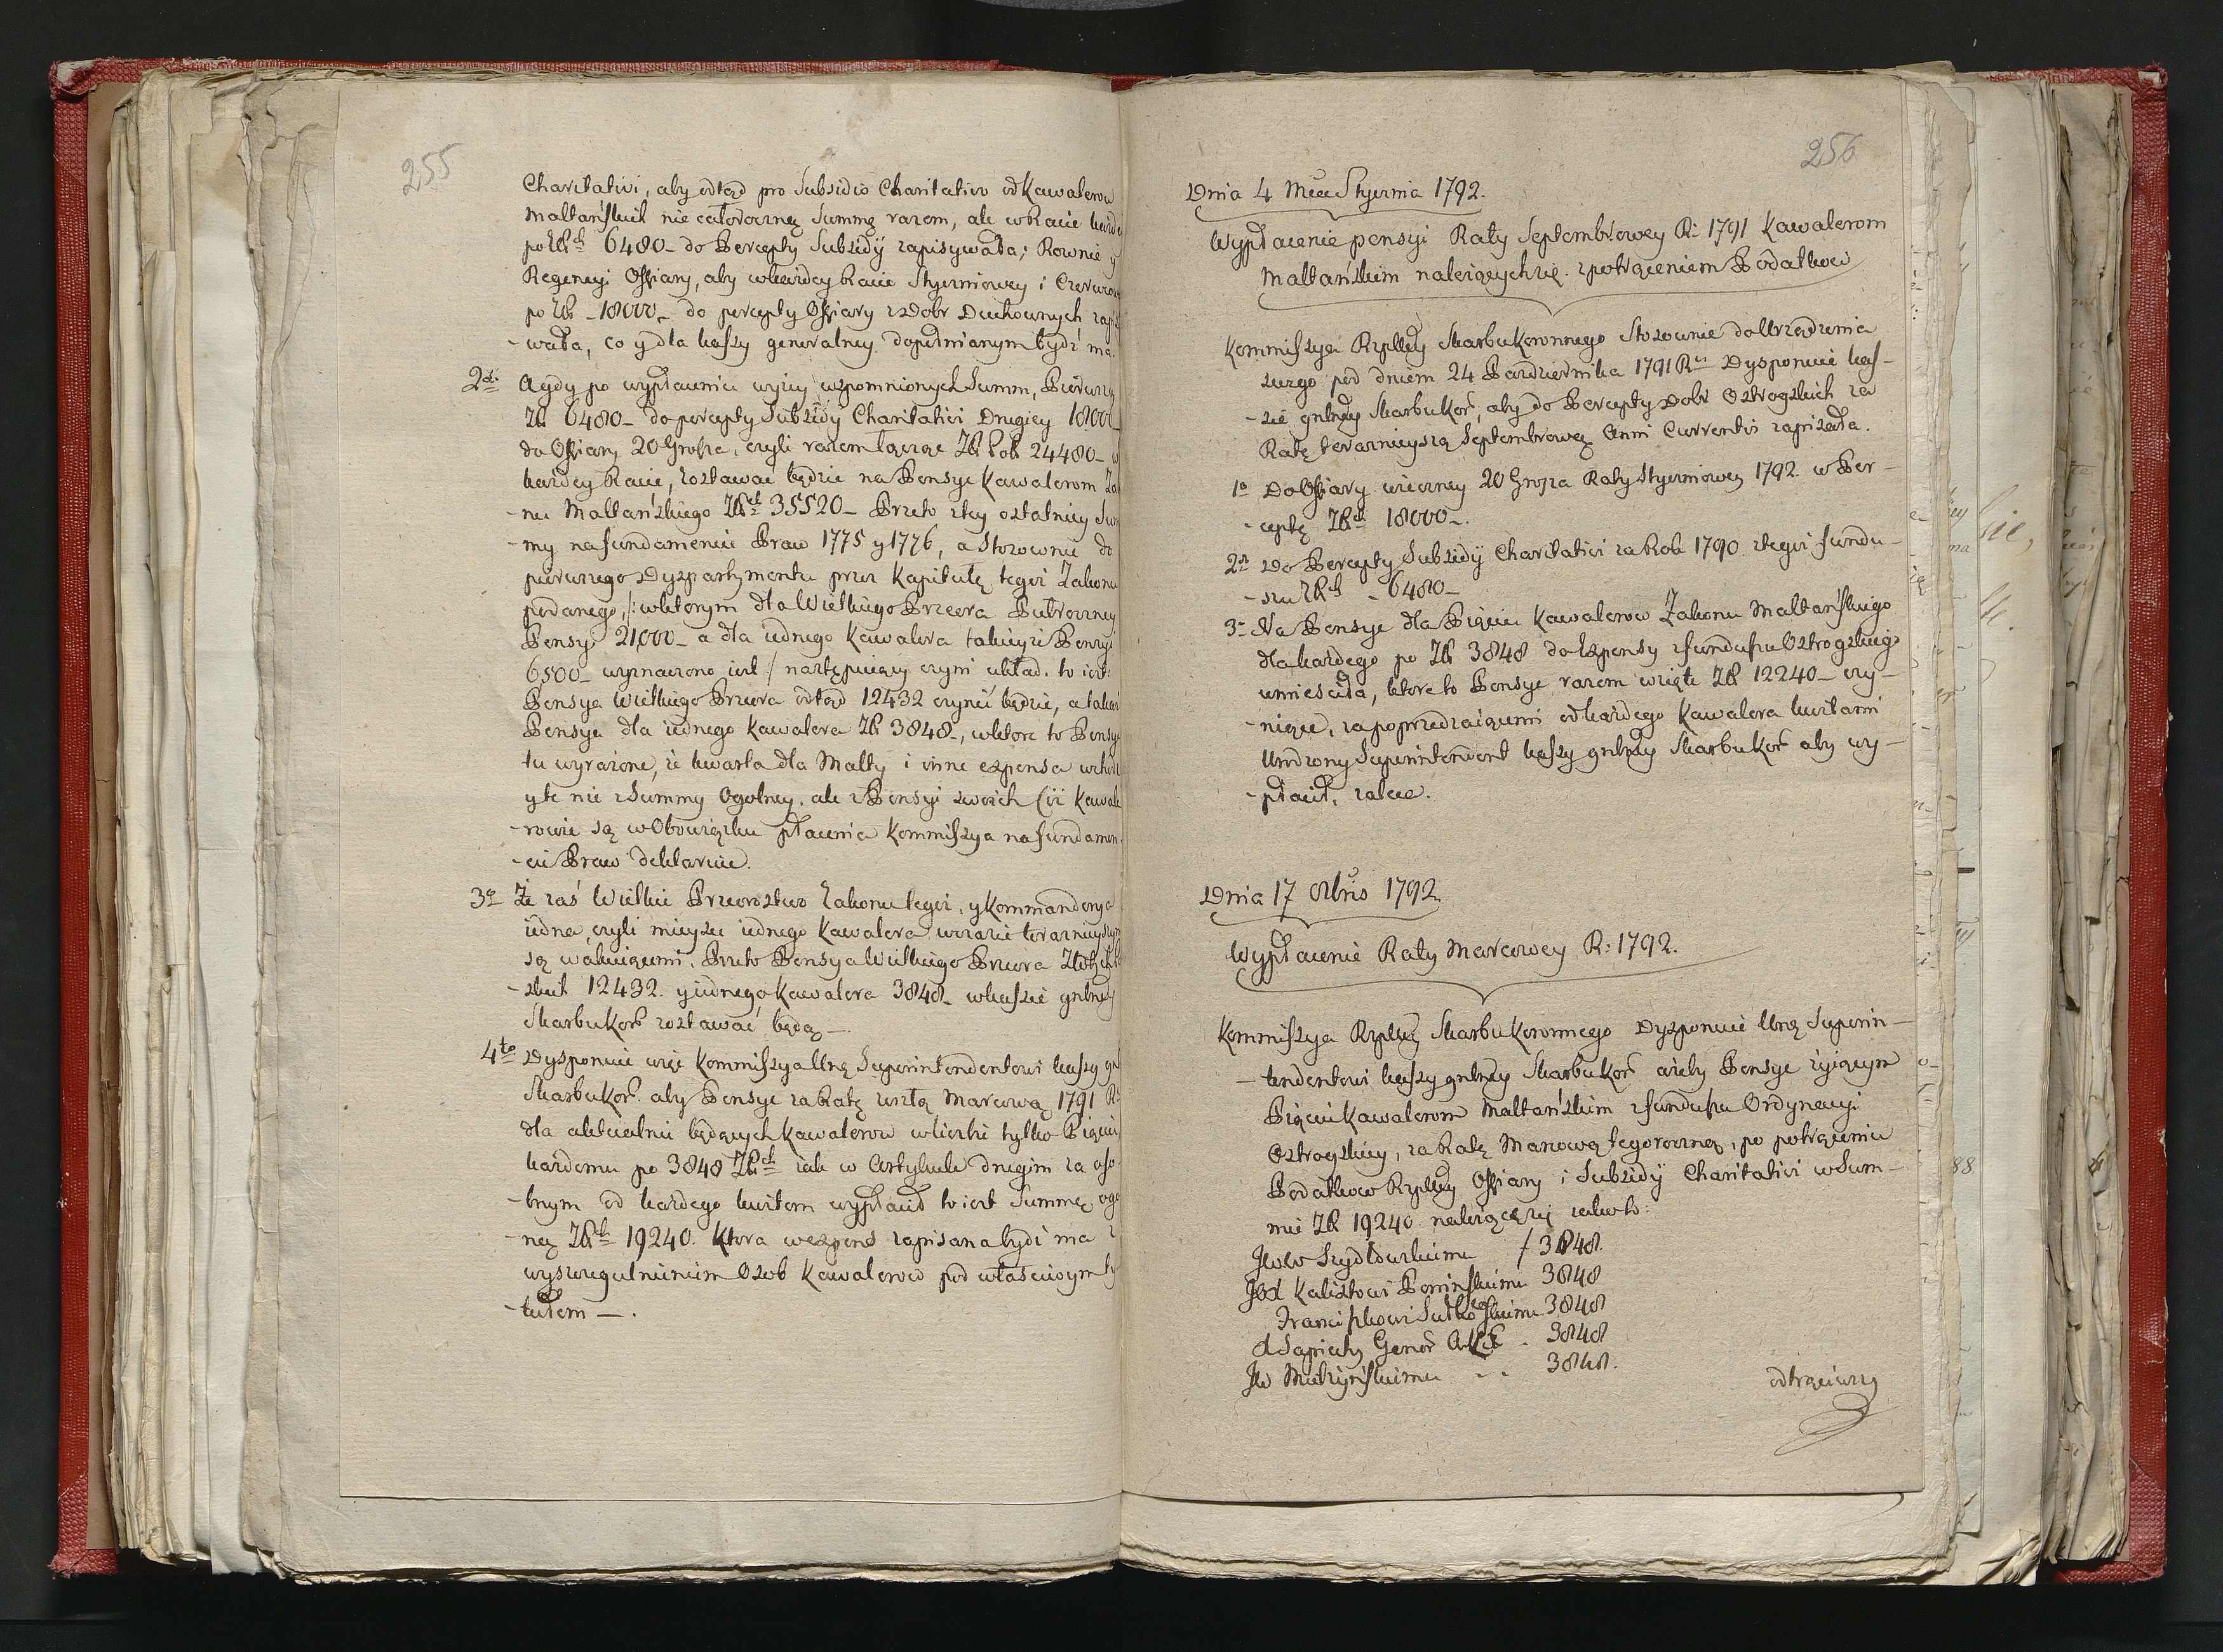 255
Charitativi, aby odtąd pro Subsidio Charitativo od Kawalerow
Maltańskich nie całoroczną Summę razem, ale w Racie każdey
po Zł 6480 – do Percepty Subsidÿ zapisywała; Rownie y
Regencyi Offiary, aby w każdey Racie Styczniowey i Czerwcowey
po Zł – 18000 – do percepty Offiary z Dobr Duchownych zapi
-wała, co y dla kassy generalney dopełnianym bydź ma.
2do A gdy po wypłaceniu wyżey wspomnionych Summ, Pierwszey
Zł 6480 – do percepty Subsidÿ Charitativi Drugiey 18000 –
do Offiary 20 Grosza, czyli razem łącząc Zł Pol: 24480 – w
każdey Racie, zostawać będzie na Pensye Kawalerom Zako
-nu Maltańskiego Złch 35520 – Przeto z tey ostatniey Sum
-my na fundamencie Praw 1775 y 1776, a stosownie do
pierwszego Dyspartymentu przez Kapitułę tegoż Zakonu
podanego, /: w ktorym dla Wielkiego Przeora Pułroczney
Pensyi 21,000 – a dla iednego Kawalera takieyże Pensyi
6500 – wyznaczone iest / następuiący czyni układ. to iest:
Pensya Wielkiego Przeora odtąd 12432 czynić będzie, a takaż
Pensya dla iednego Kawalera Zł 3848 –, w ktore to Pensye
tu wyrażone, iż kwarta dla Malty i inne expensa wchod
y te nie z Summy Ogolney, ale z Pensyi swoich Ciż Kawale
-rowie są w Obowiązku płacenia Kommissya na fundamen
-cie Praw deklaruie.
3o Że zaś Wielkie Przeorstwo Zakonu tegoż, y Kommandorya
iedna, czyli mieysce iednego Kawalera w czasie teraznieyszym
są wakuiącemi, Przeto Pensya Wielkiego Przeora Złotych
-skich 12432. y iednego Kawalera 3848 – w kassie gnlney
Skarbu Kor: zostawać będą –.
4to Dysponuie więc Kommissya Urę Superintendentowi kassy gn
Skarbu Kor: aby Pensye za Ratę zeszłą Marcową 1791 R
dla aktualnie będących Kawalerow w liczbie tylko Pięciu
każdemu po 3848 Złch iak w Artykule drugim za oso
-bnym od każdego kwitem wypłacił to iest Summę ogo
-ną Złch 19240. Ktora w expens zapisana bydź ma z
wyszczegulnieniem Osob Kawalerow pod właściwym ty
-tułem –.
256
Dnia 4 Mca Stycznia 1792.
Wypłacenie pensyi Raty Septembrowey R: 1791 Kawalerom
Maltańskim należących się. z potrąceniem Podatkow
Kommissya Rzpltey Skarbu Koronnego Stosownie do Urządzenia
swego pod dniem 24 Pazdziernika 1791 Ru Dysponuie kas-
-sie gnlney Skarbu Kor: aby do Percepty Dobr Ostrogskich za
Ratę teraznieyszą Septembrową Anni Currentis zapisała.
1o Do Offiary wieczney 20 Grosza Raty Styczniowey 1792. w Per-
-ceptę Złch 18000 –.
2do Do Percepty Subsidÿ Charitativi za Rok 1790. z tegoż fundu-
-szu Złch – 6480 –
3o Na Pensye dla Pięciu Kawalerow Zakonu Maltańskiego
dla każdego po Zł 3848 do Expensy z funduszu Ostrogskiego
umieściła, ktore to Pensye razem wzięte Zł 12240 – czy-
-niące, za poprzedzaiącemi od każdego Kawalera kwitami
Urodzony Superintendent kassy gnlney Skarbu Kor: aby wy-
-płacił, zaleca.
Dnia 17 Xbris 1792.
Wypłacenie Raty Marcowey R: 1792.
Kommissya Rzpltey Skarbu Koronnego Dysponuie Urę Superin-
– tendentowi kassy gnlney Skarbu Kor: ażeby Pensye żyiącym
Pięciu Kawalerom Maltańskim z funduszu Ordynacyi
Ostrogskiey, za Ratę Marcową tegoroczną, po potrąceniu
Podatkow Rzpltey Offiary i Subsidÿ Charitativi w Sum-
mie Zł 19240. należące się iako to:
JWW Szydłowskiemu / 3848.
JOX Kalixtowi Ponińskiemu 3848
Franciszkowi Sułkoskiemu 3848
X Sapiezy Genor Art Lit . 3848
JW Mielżyńskiemu . . 3848.
odtrąciwszy